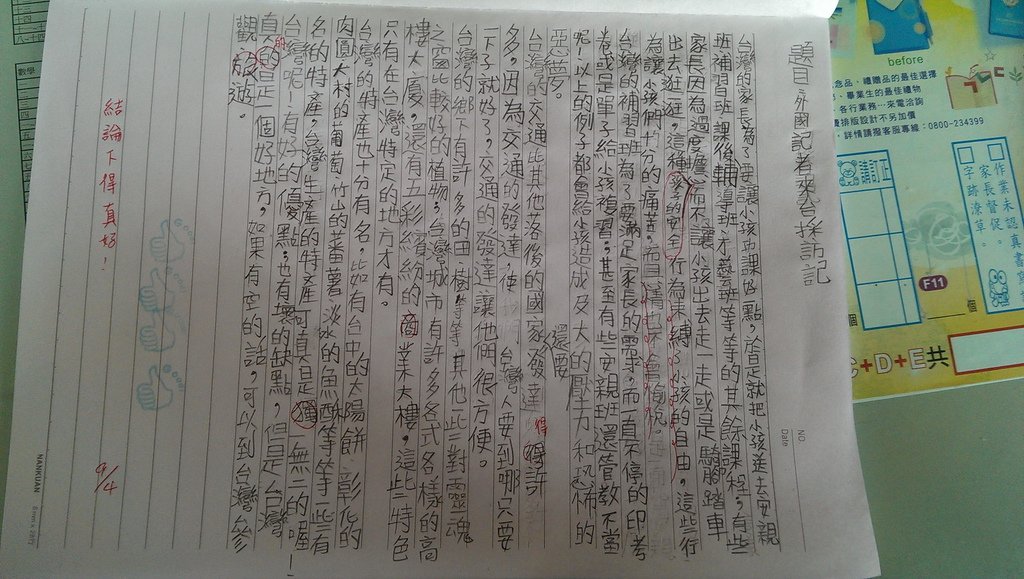 題目:外國記者來台採訪記
台灣的家長為了要讓小孩功課好一點,於是就把小孩送去安親
班補習班課後輔導班才藝班等等的其餘課程,有些
家長因為過度擔心而不讓小孩出去走一走或是騎腳踏車
出去逛逛。這種
行為束縛小孩的自由,這些行
為讓小孩們十分的痛苦,而且
台灣的補習班為了要滿足家長的需求,而一直不停的印考
卷或是單子給小孩複習,甚至有些安親班還管教不當
呢!以上的例子都會給小孩造成及大的壓力和恐怖的
惡夢。
台灣的交通比其他落後的國家還要發達得許
多,因為交通的發達,使
台灣人要到哪只要
一下子就好了,交通的發達讓他們很方便。
台灣的鄉下有許多的田樹等等其他一些對靈魂
之窗比較好的植物,台灣城市有許多各式各樣的高
樓大廈,還有五彩繽紛的商業大樓,這些特色
只有在台灣特定的地方才有。
台灣的特產也十分有名,比如有台中的太陽餅彰化的
肉圓大村的葡萄竹山的番薯淡水的魚酥等等一些有
名的特產,台灣生產的特產可真是獨一無二的喔!
台灣呢!有好的優點,也有壞的缺點,但是台灣
真的是一個好地方,如果有空的話,可以到台灣參
觀遊。
結論下得真好!
9/4
NO.
Date
NANKUAN
before
念品、禮贈品的最佳選擇
、畢業生的最佳禮物
各行業務…來電洽詢
排版設計不另加價
詳情請撥客服專線:0800-234399
請訂正
作業未認真書寫
家長督促。
字跡潦草。
F11
個
C+D+E共
數學